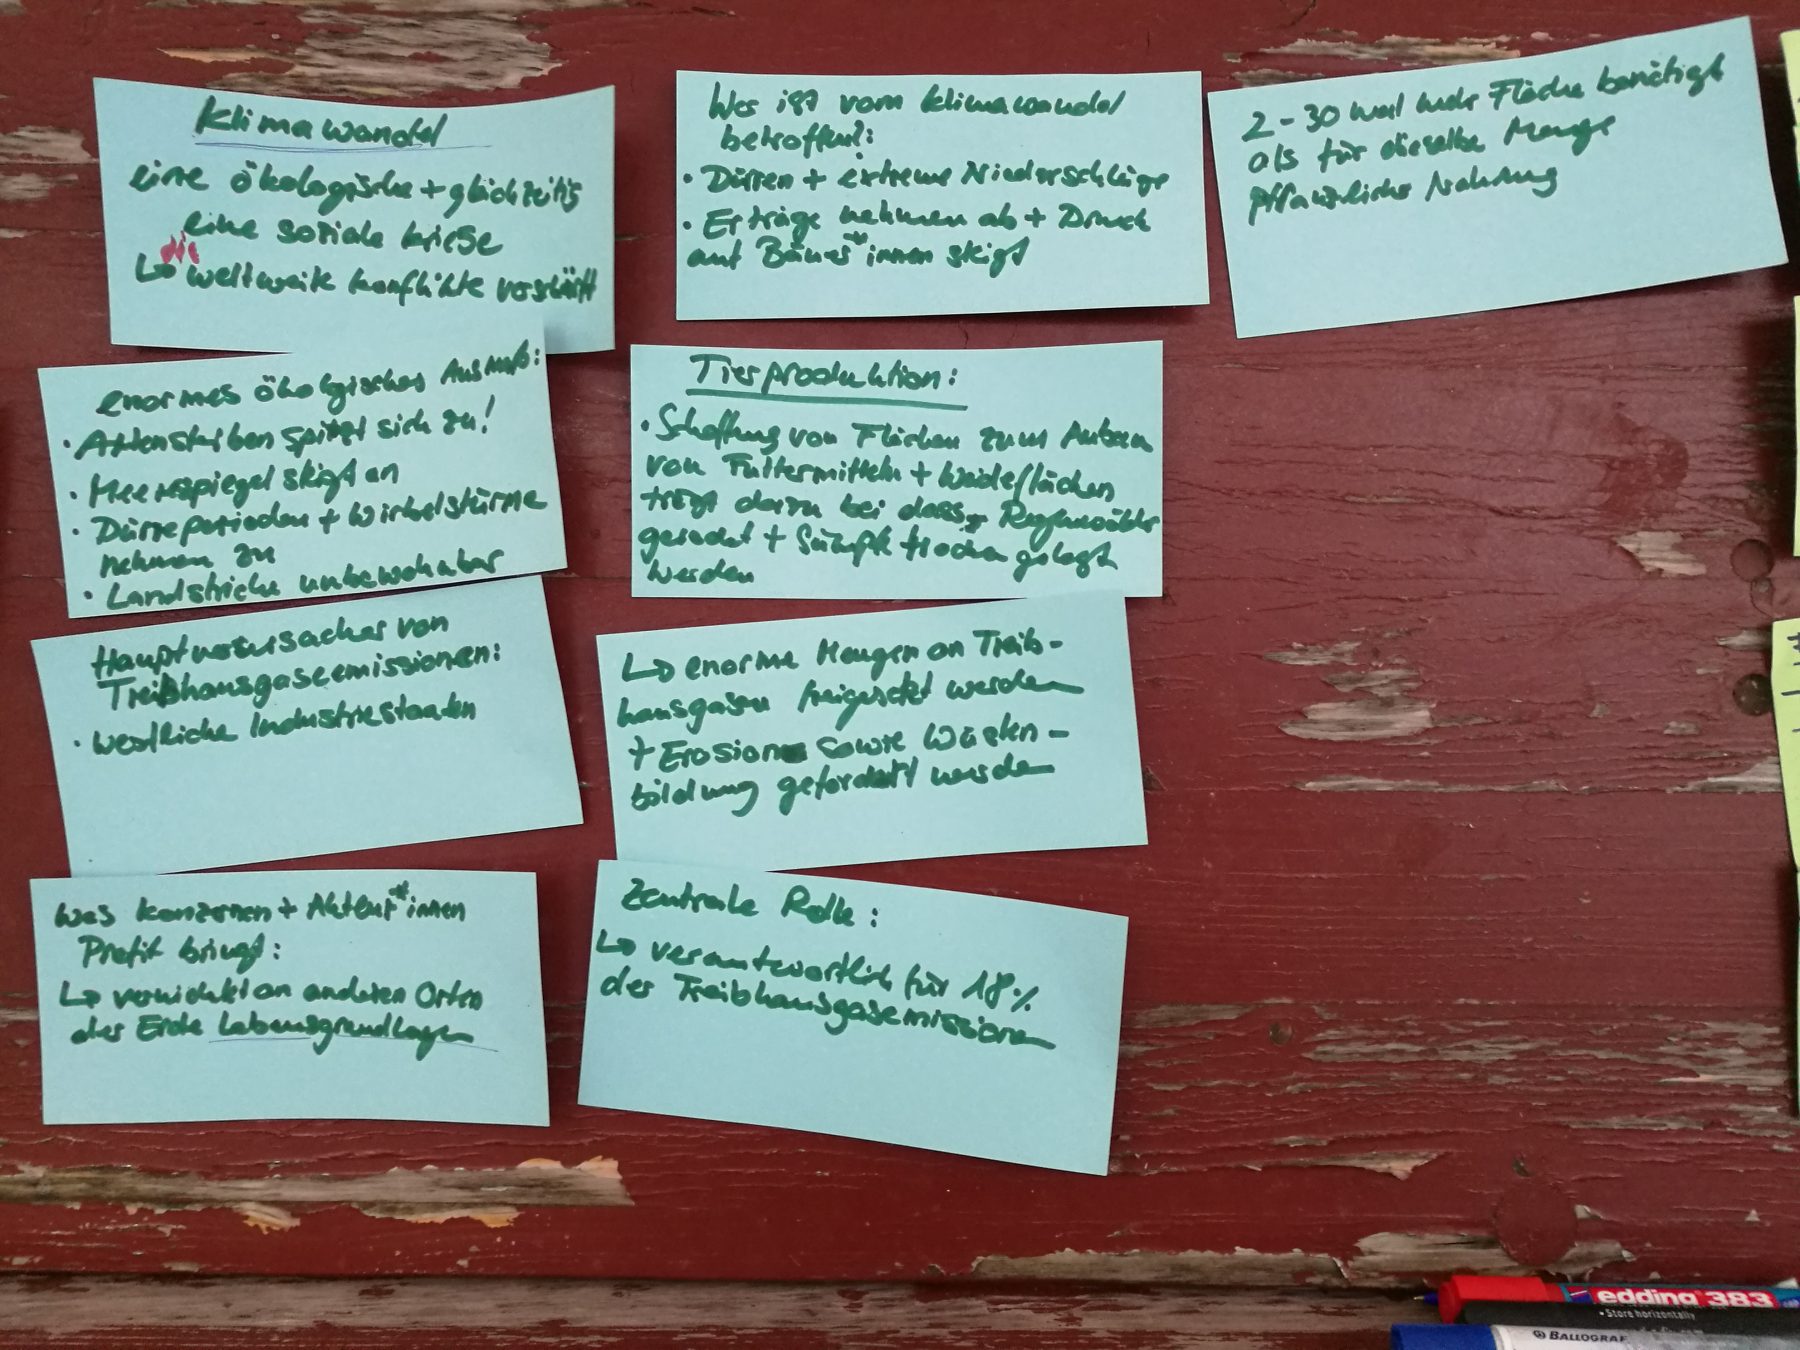 Klimawandel
eine ökologische + gleichzeitig
eine soziale Kriese
die
↳ weltweite Konflikte verschärft
enormes ökologisches Ausmaß:
• Artensterben spitzt sich zu!
• Meerspiegel steigt an
• Dürreperioden + Wirbelstürme
nehmen zu
• Landstriche unbewohnbar
Hauptverursacher von
Treibhausgasemissionen:
• westliche Industriestaaten
Was Konzernen + Akteur*innen
Profit bringt:
↳ vernichtet an anderen Orten
der Erde Lebensgrundlagen
Wes ist vom Klimawandel
betroffen?:
• Dürren + extreme Niederschläge
• Erträge nehmen ab + Druck
auf Bäuer*innen steigt
Tierproduktion:
• Schaffung von Flächen zum Anbau
von Futtermitteln + Weideflächen
trägt dazu bei dass, Regenwälder
gerodet + Sümpfe trocken gelegt
werden
↳ enorme Mengen an Treib-
hausgasen freigesetzt werden
+ Erosion sowie Wüsten-
bildung gefördert werden
Zentrale Rolle:
↳ verantwortlich für 18%
der Treibhausgasemissionen
2-30 mal mehr Fläche benötigt
als für dieselbe Menge
pflanzliche Nahrung
edding 383
• Store horizontally
BALLOGRAF